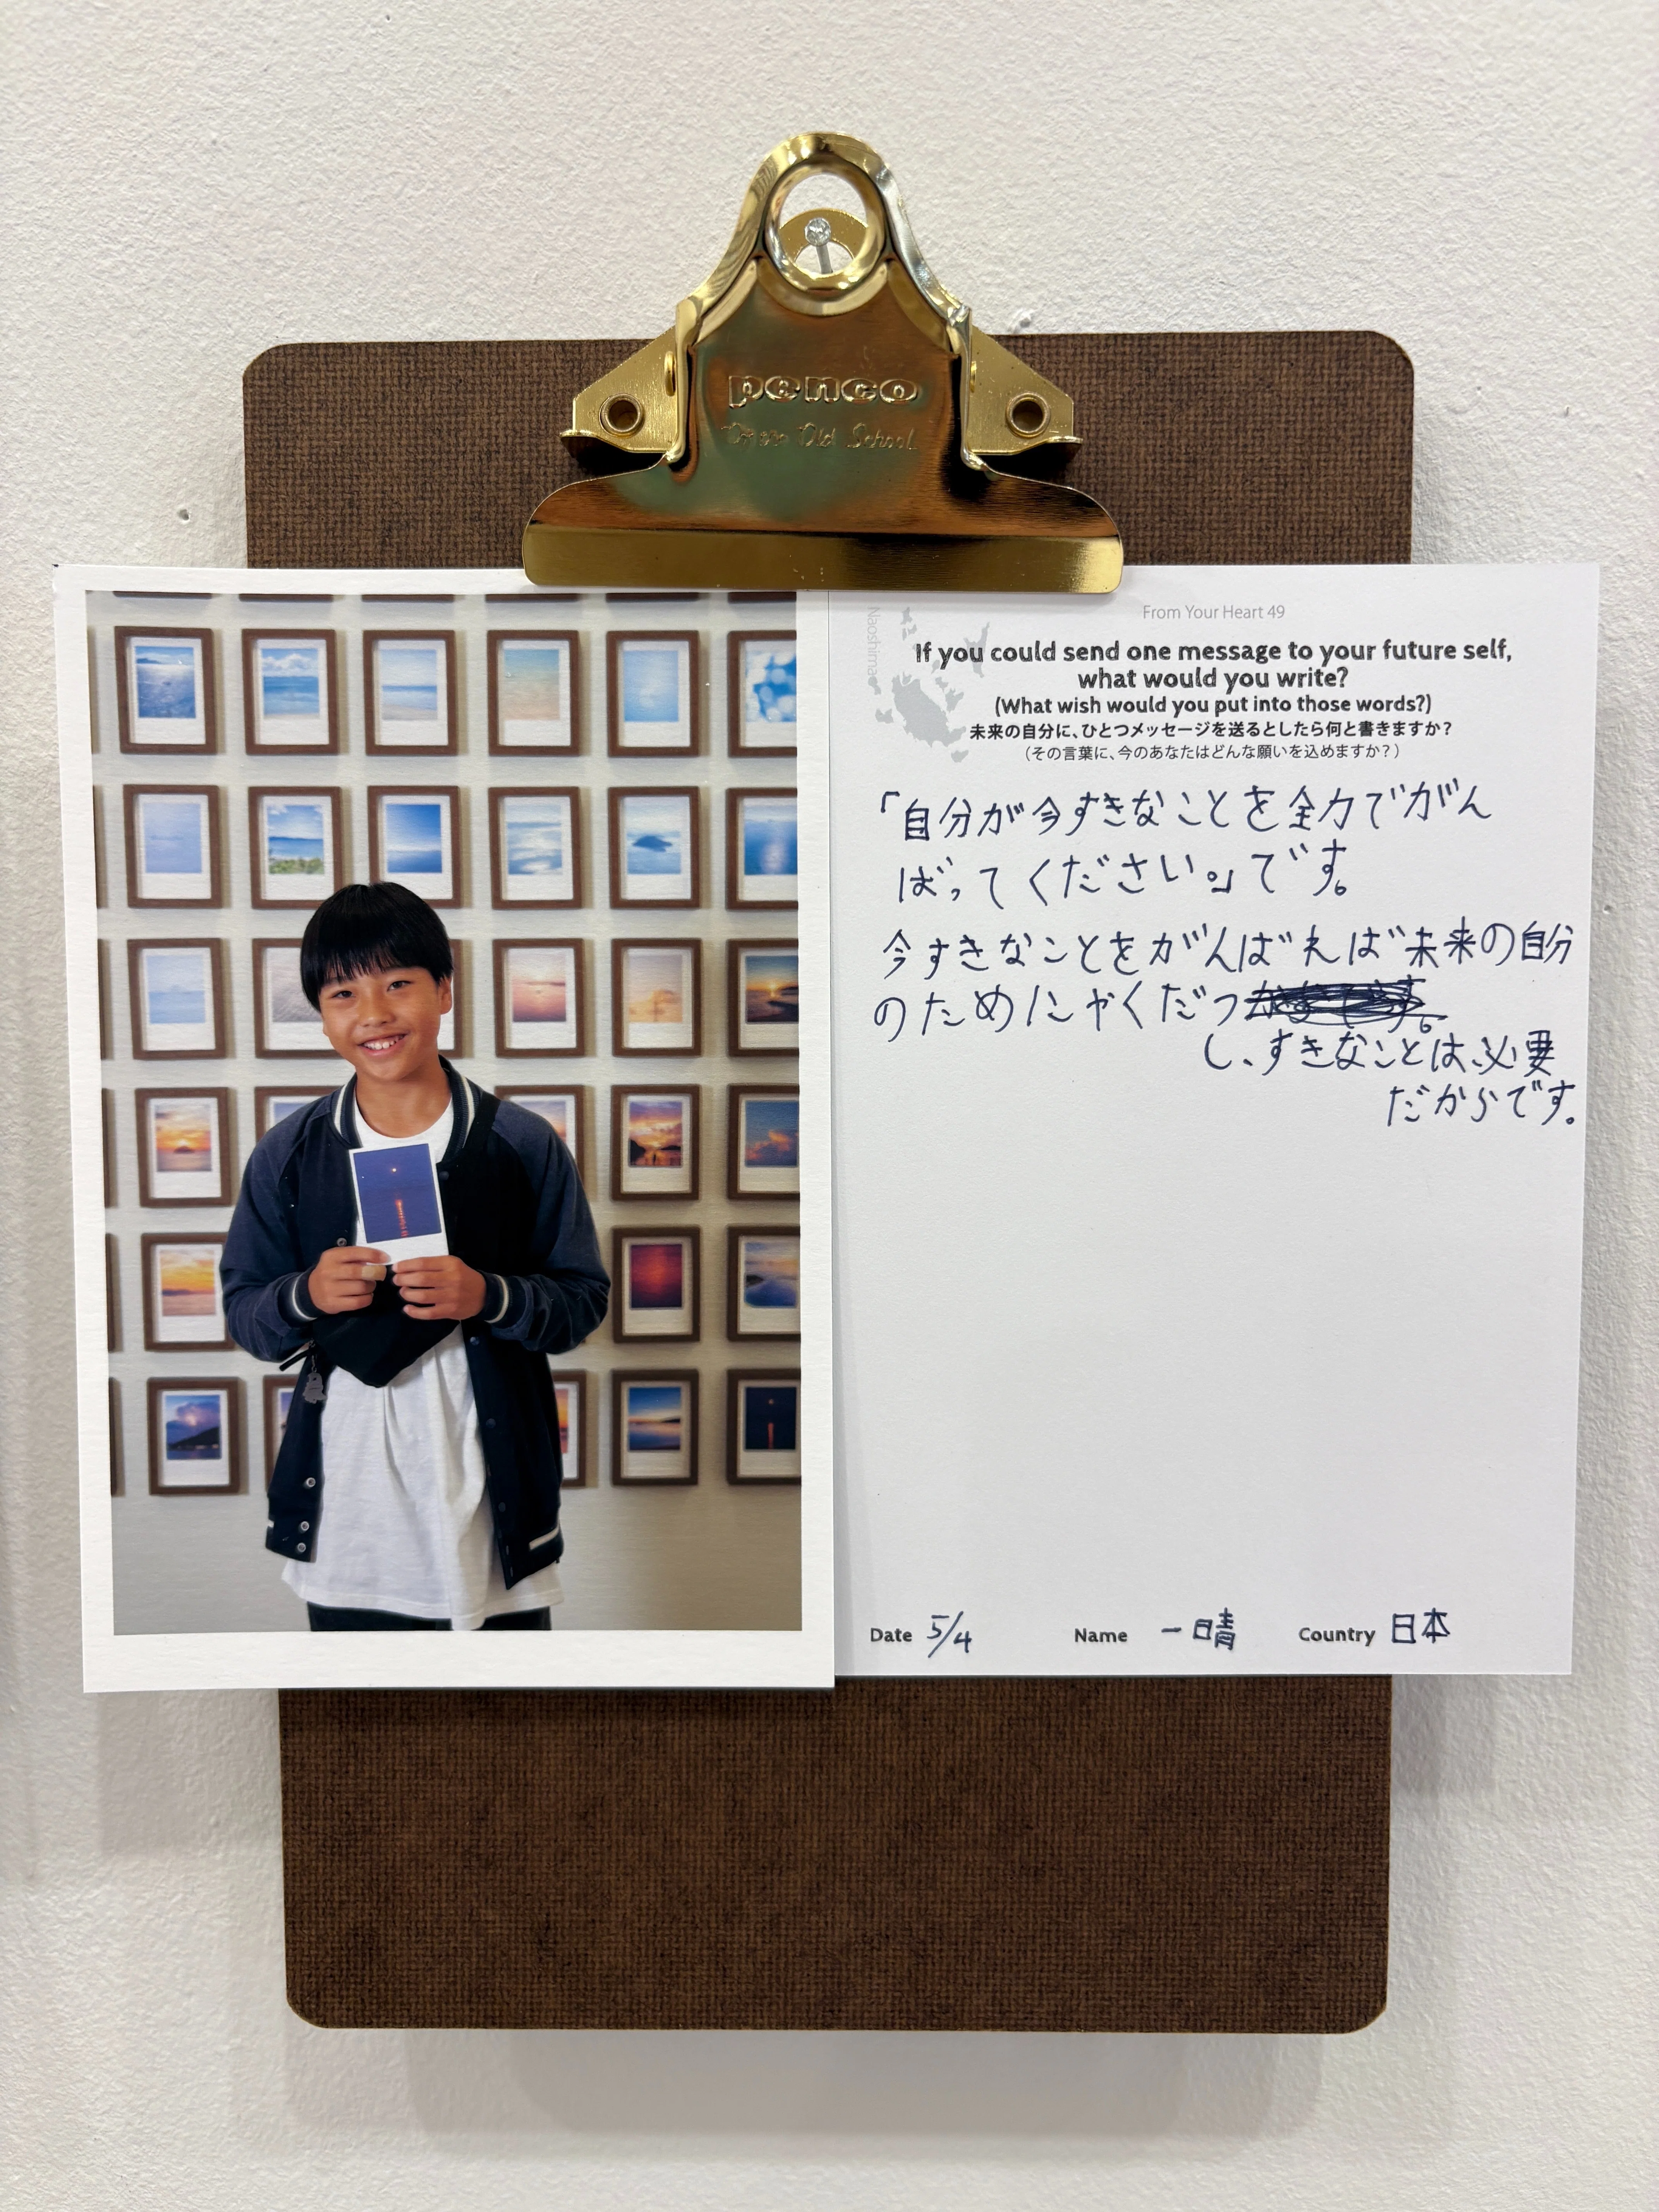 penco
Old School
From Your Heart 49
Naoshima
If you could send one message to your future self,
what would you write?
(What wish would you put into those words?)
未来の自分に、ひとつメッセージを送るとしたら何と書きますか？
（その言葉に、今のあなたはどんな願いを込めますか？）
「自分が今すきなことを全力でがん
ばってください。」です。
今すきなことをがんばれば未来の自分
のためにやくだつ
し、すきなことは、必要
だからです。
Date 5/4 Name 一晴 Country 日本